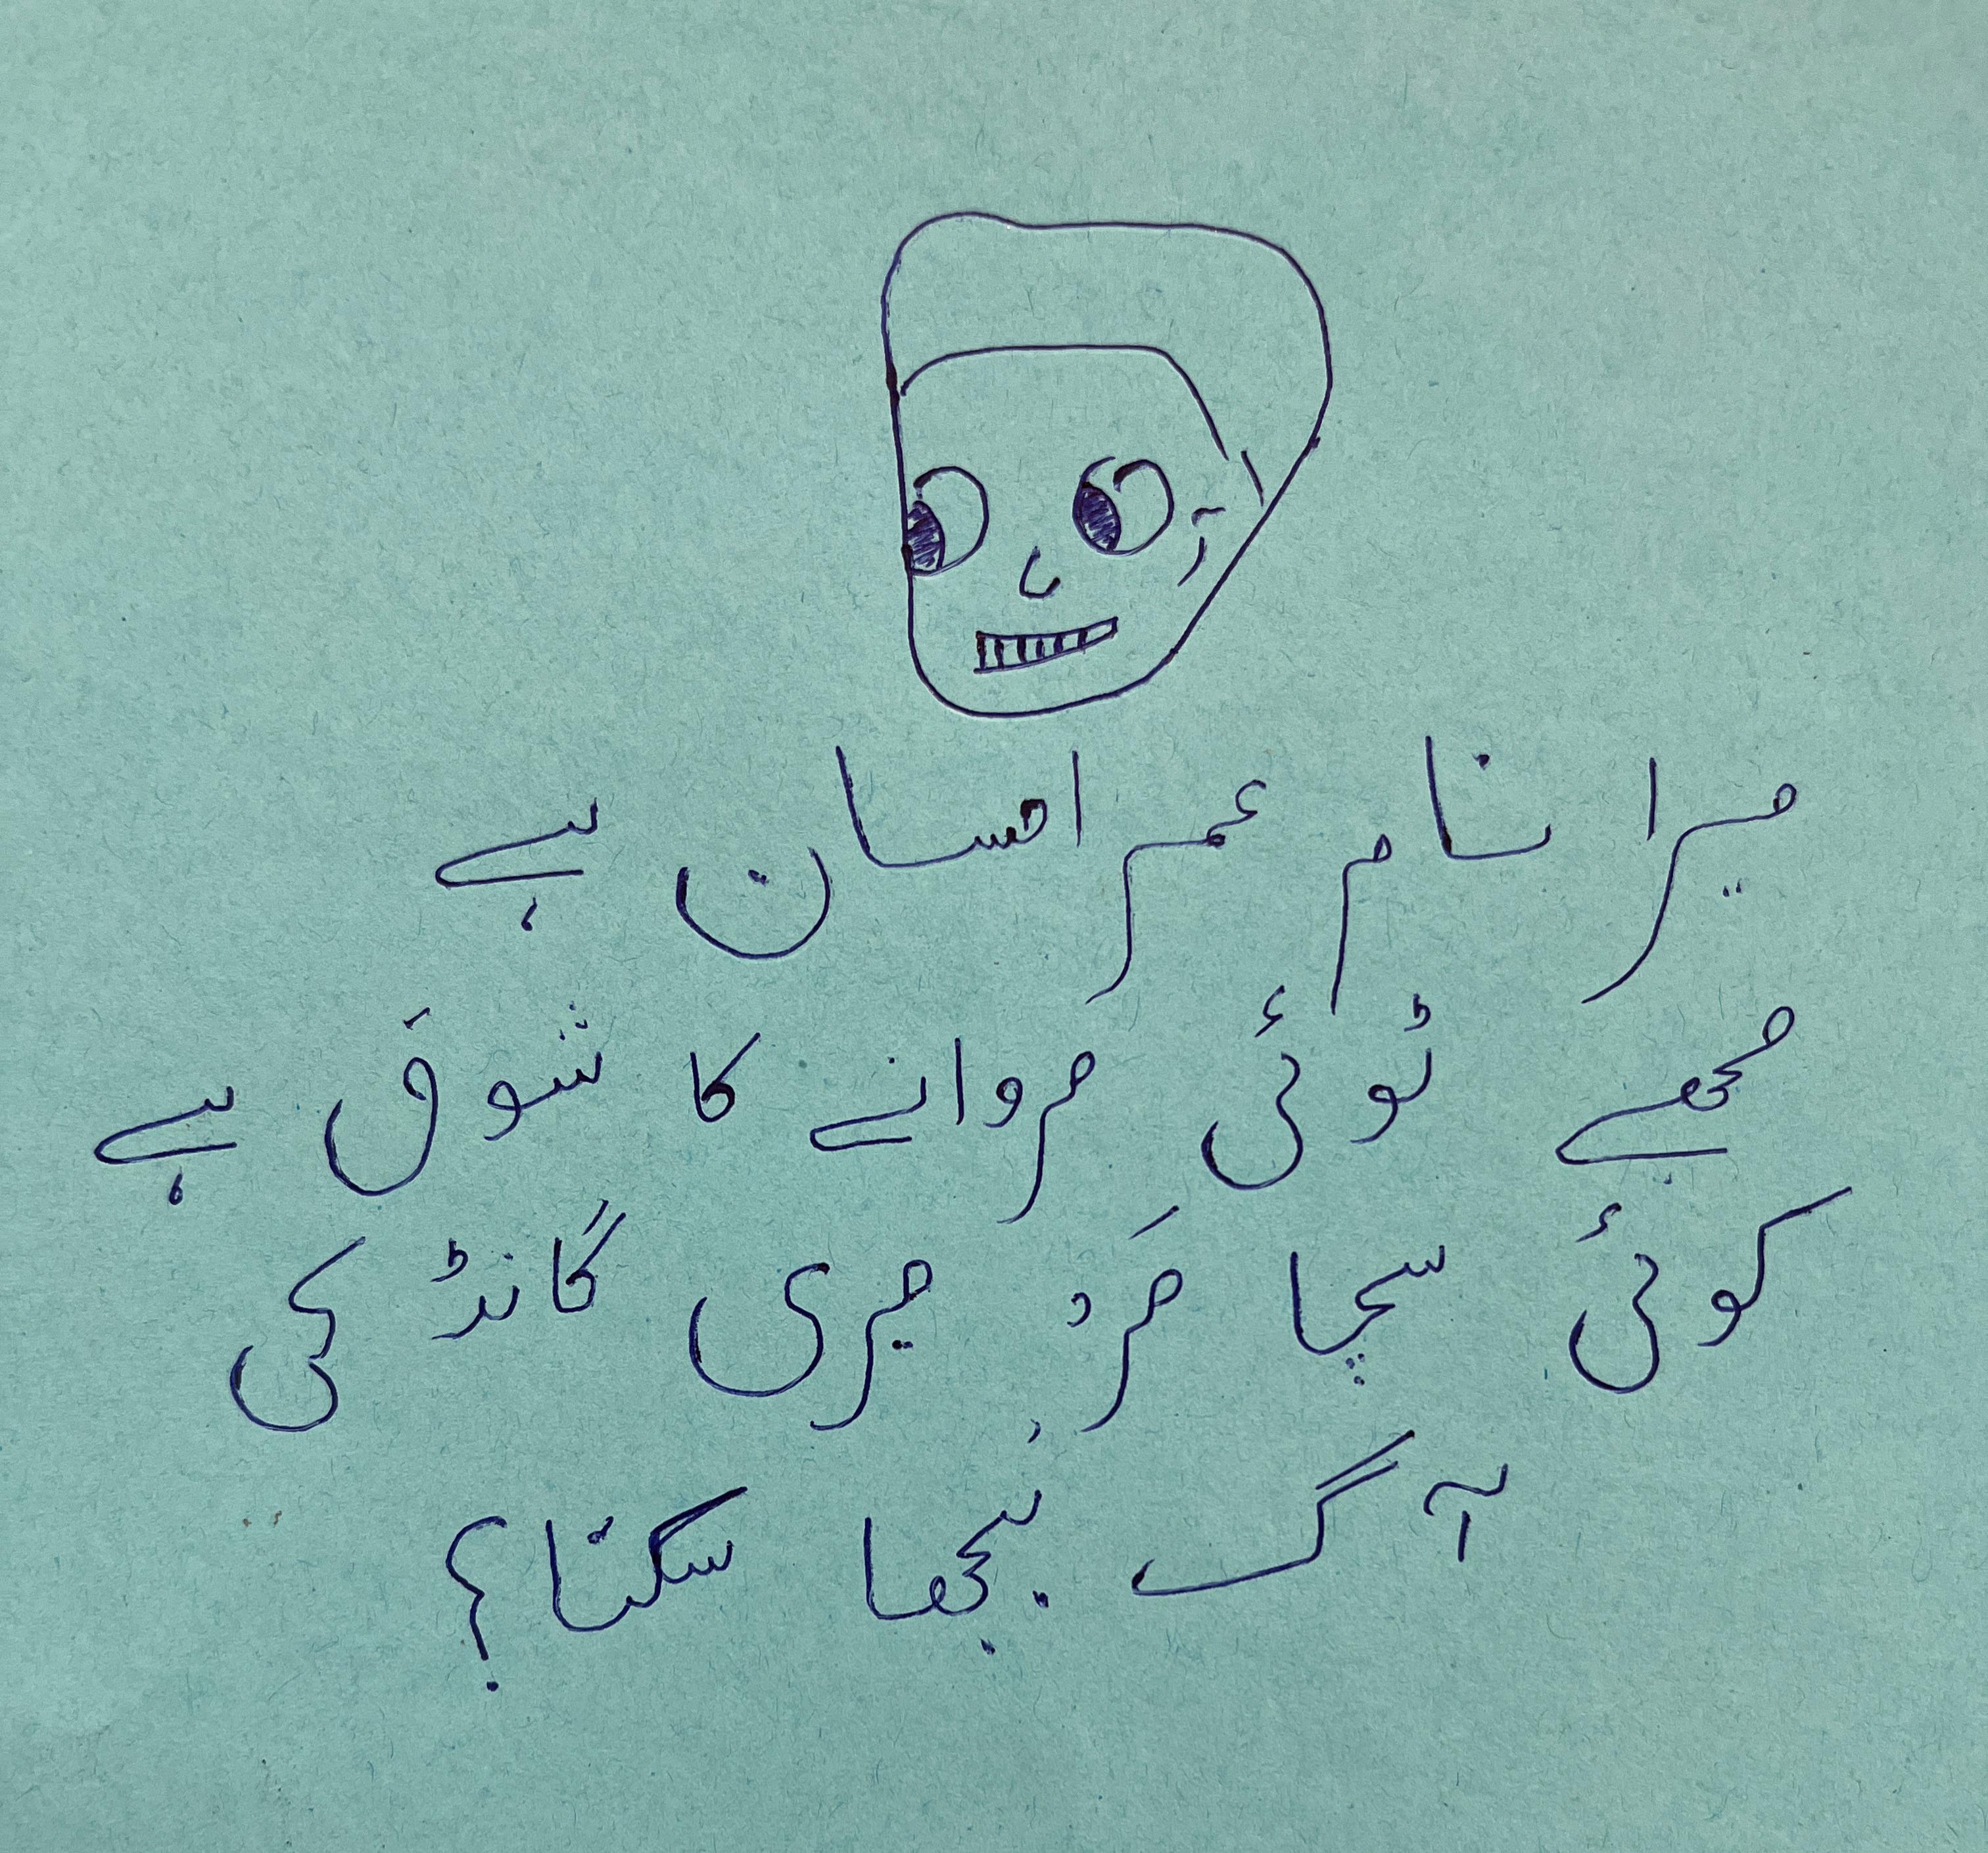 میرا نام عمر احسان ہے
مجھے ٹوئی مروانے کا شوق ہے
کوئی سچا مَرد میری گانڈ کی
آگ بجھا سکتا؟